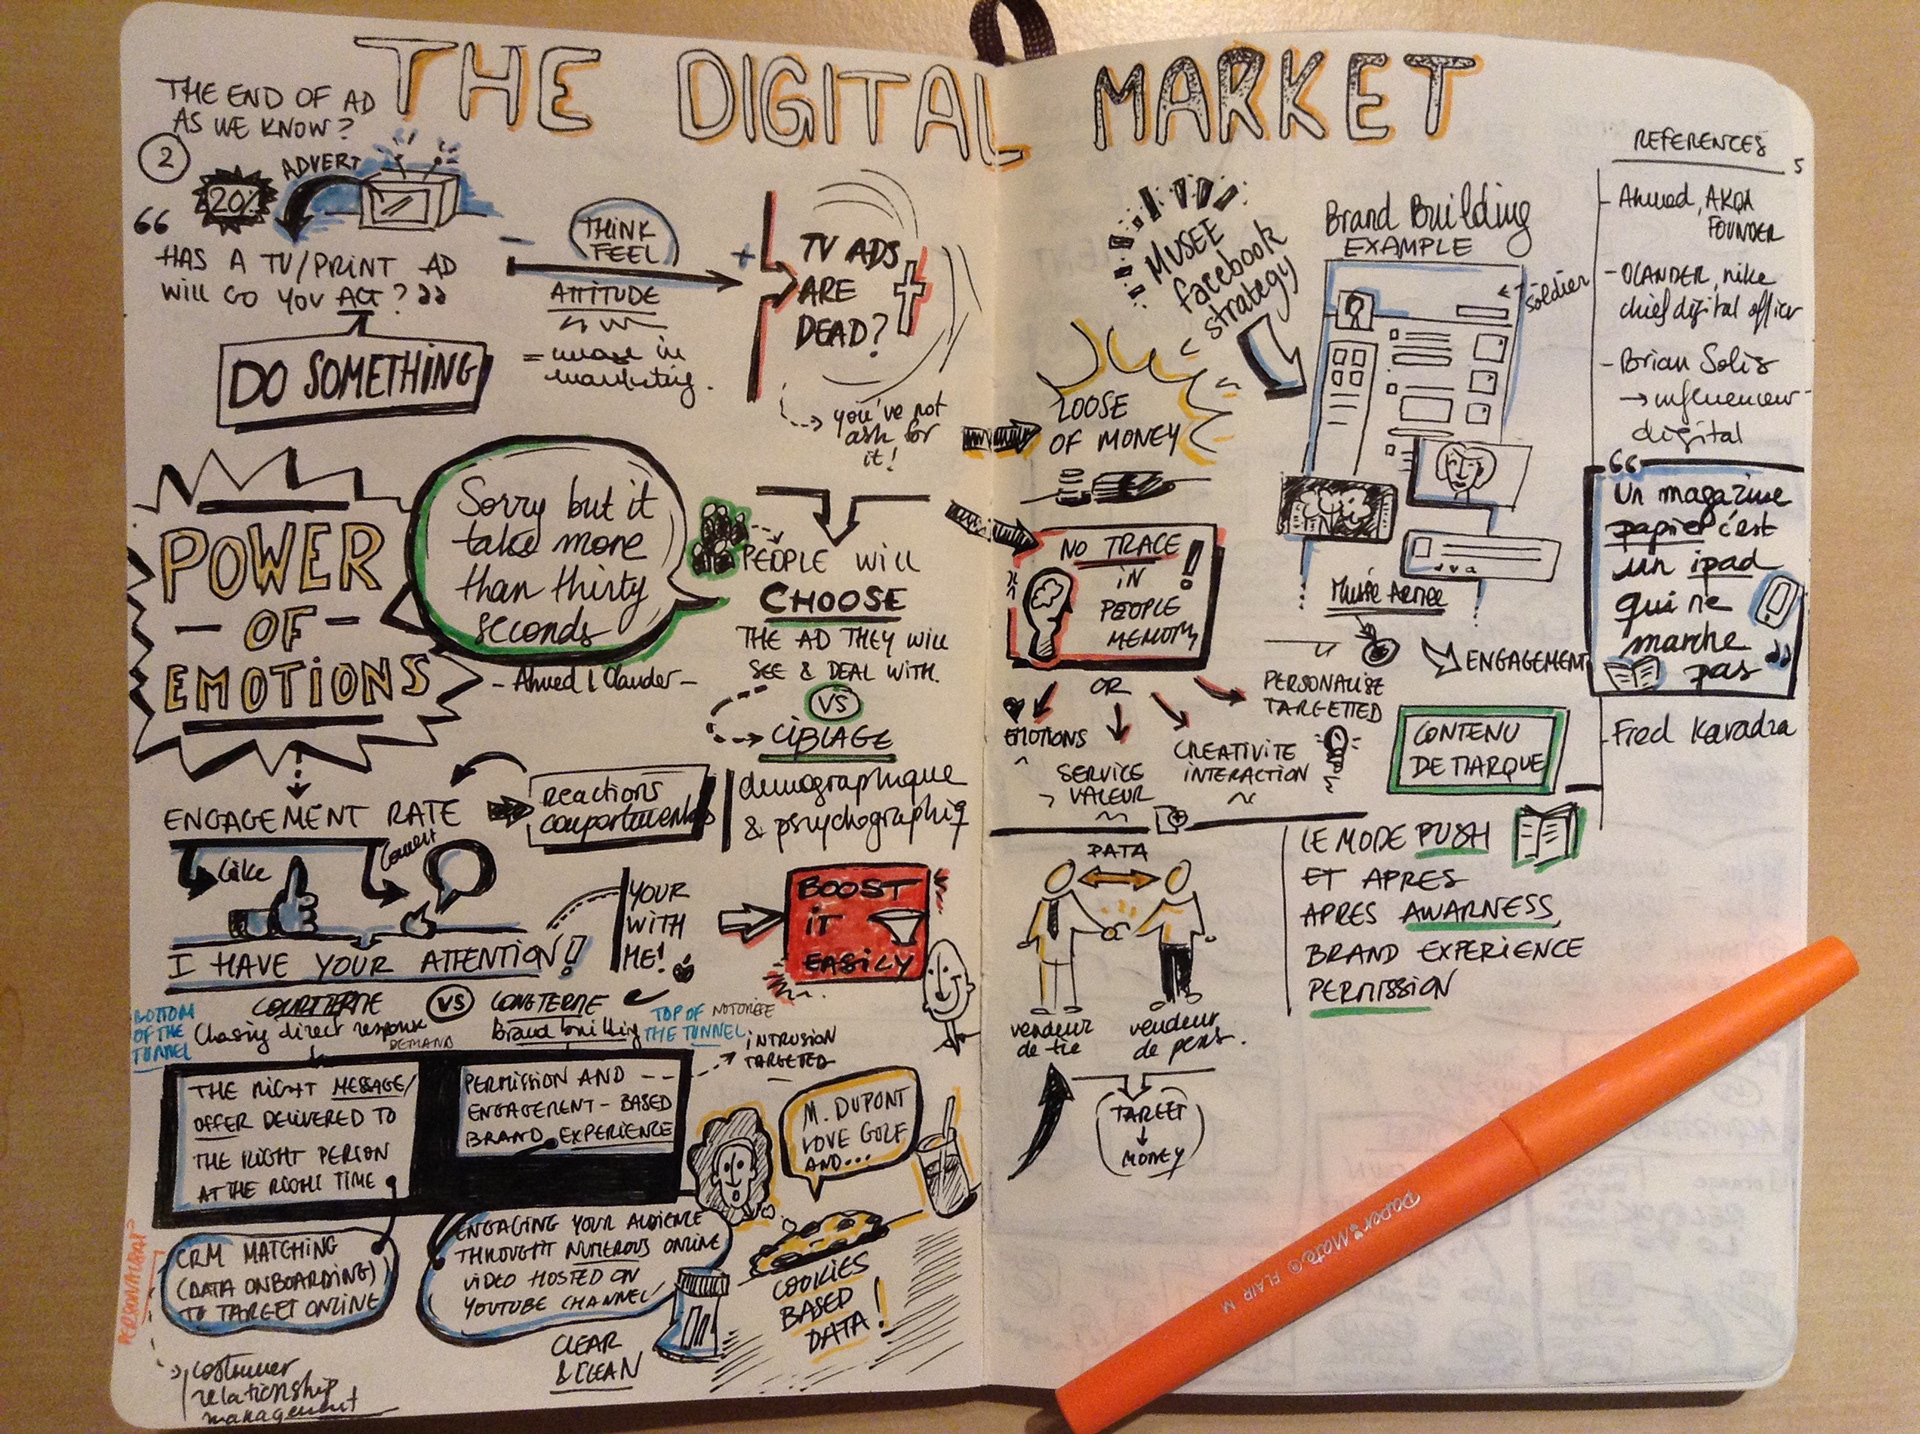 THE DIGITAL MARKET
THE END OF AD
AS WE KNOW?
2
ADVERT
20%
“
HAS A TV/PRINT AD
WILL GO YOU ACT? ”
DO SOMETHING
THINK
FEEL
-
+
ATTITUDE
= in
marketing.
TV ADS
ARE
DEAD?
you've not
ask for
it!
POWER
- OF -
EMOTIONS
Sorry but it
take more
than thirty
seconds
- Ahmed | Olander -
PEOPLE WILL
CHOOSE
THE AD THEY WILL
SEE & DEAL WITH.
VS
CIBLAGE
demographique
& psychographiq
ENGAGEMENT RATE
reactions
comportementales
like
Coment
I HAVE YOUR ATTENTION!
YOUR
WITH
ME!
BOOST
iT
EASILY
COURTTERME
VS
LONGTERME
BOTTOM
OF THE
TUNNEL
Chasing direct response
DEMAND
Brand building
TOP OF
THE TUNNEL
NOTORIETE
INTRUSION
TARGETED
THE RIGHT MESSAGE/
OFFER DELIVERED TO
THE RIGHT PERSON
AT THE RIGHT TIME
PERMISSION AND
ENGAGEMENT-BASED
BRAND EXPERIENCE
M. DUPONT
LOVE GOLF
AND...
CRM MATCHING
(DATA ONBOARDING)
TO TARGET ONLINE
ENGAGING YOUR AUDIENCE
THROUGHT NUMEROUS ONLINE
VIDEO HOSTED ON
YOUTUBE CHANNEL
CLEAR
& CLEAN
COOKIES
BASED
DATA!
costumer
relationship
management
MUSEE
facebook
strategy
Brand Building
EXAMPLE
Soldier
LOOSE
OF MONEY
NO TRACE
iN
PEOPLE
MEMORY
!
OR
EMOTIONS
SERVICE
VALEUR
CREATIVITE
INTERACTION
PERSONALISE
TARGETTED
Musée Armée
ENGAGEMENT
CONTENU
DE MARQUE
DATA
vendeur
de tie
vendeur
de pens.
TARGET
MONEY
LE MODE PUSH
ET APRES
APRES AWARNESS,
BRAND EXPERIENCE
PERMISSION
REFERENCES
5
- Ahmed, AKQA
FOUNDER
- OLANDER, nike
chief digital officer
- Brian Solis
→ influenceur
digital
“
Un magazine
papier c'est
un ipad
qui ne
marche
pas ”
- Fred Kavadza
Paper Mate ® FLAIR M